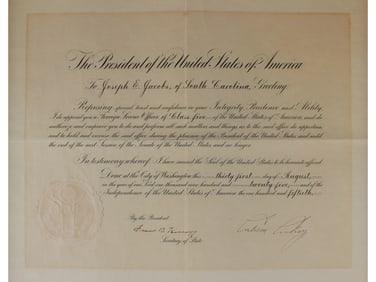 The President of the United States of America
To Joseph E. Jacobs, of South Carolina, Greeting:
Reposing special trust and confidence in your Integrity, Prudence and Ability,
I do appoint you a Foreign Service Officer of Class five of the United States of America, and do
authorize and empower you to do and perform all such matters and things as to the said office do appertain,
and to hold and exercise the said office during the pleasure of the President of the United States and until
the end of the next Session of the Senate of the United States and no longer.
In testimony whereof, I have caused the Seal of the United States to be hereunto affixed.
Done at the City of Washington this thirty first day of August,
in the year of our Lord one thousand nine hundred and twenty five, and of the
Independence of the United States of America the one hundred and fiftieth.
By the President:
Secretary of State